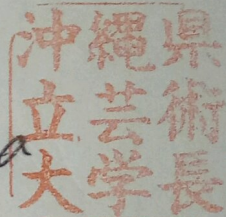 沖縄県
立芸術
大学長